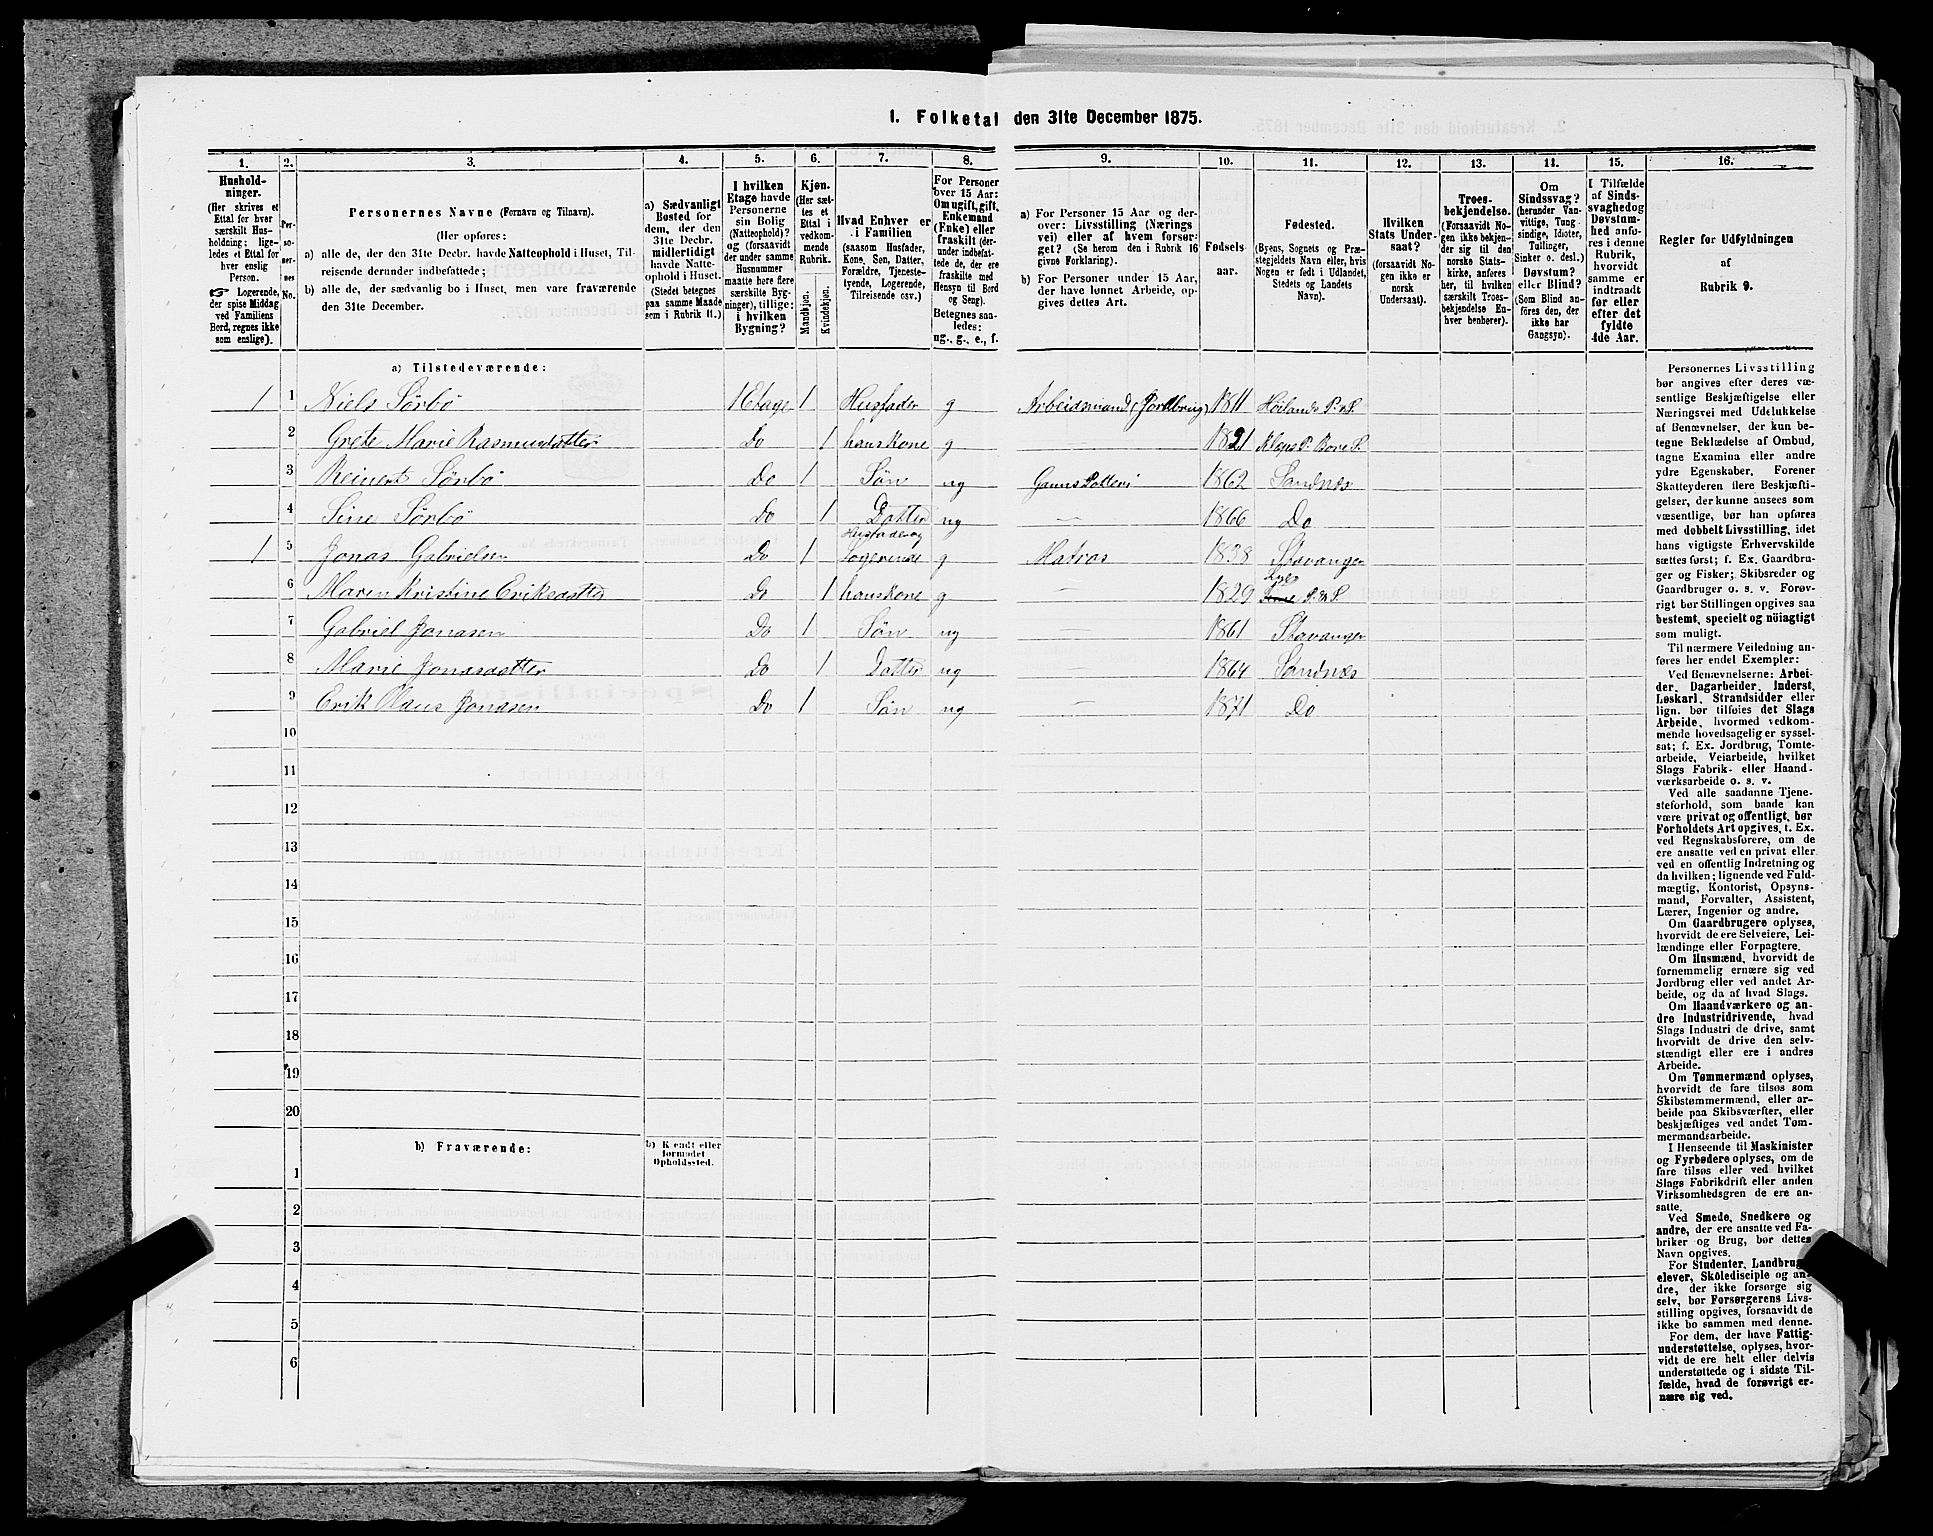 1. Folketal den 31te December 1875.
1. 2. 3. 4. 5. 6. 7. 8. 9. 10. 11. 12. 13. 14. 15. 16.
Husholdninger.
(Her skrives et
Ettal for hver
særskilt Husholdning;
ligeledes et Ettal for
hver enslig
Person.
☞ Logerende,
der spise Middag
ved Familiens
Bord, regnes ikke
som enslige).
Personernes No.
Personernes Navne (Fornavn og Tilnavn).
(Her opføres:
a) alle de, der den 31te Decbr. havde Natteophold i Huset, Tilreisende derunder indbefattede;
b) alle de, der sædvanlig bo i Huset, men vare fraværende
den 31te December.
a) Sædvanligt
Bosted for
dem, der den
31te Decbr.
midlerlidigt
havde Natteophold i Huset.
(Stedet betegnes
paa samme Maade
som i Rubrik 11.)
I hvilken
Etage havde
Personerne
sin Bolig
(Natteophold)?
og (forsaavidt
der under samme
Husnummer
maatte høre flere
særskilte Bygninger), tillige:
i hvilken
Bygning?
Kjøn.
(Her sættes et
Ettal i
vedkommende
Rubrik.
Mandkjøn.
Kvindekjøn.
Hvad Enhver er
i Familien
(saasom Husfader,
Kone, Søn, Datter,
Forældre, Tjenestetyende, Logerende,
Tilreisende osv.)
For Personer
over 15 Aar:
Om ugift, gift,
Enkemand
(Enke) eller
fraskilt (derunder indbefattede de, der ere
fraskilte med
Hensyn til Bord
og Seng).
Betegnes saaledes:
ug., g., e., f.
a) For Personer 15 Aar og derover: Livsstilling (Næringsvei) eller af hvem forsørget? (Se herom den i Rubrik 16
givne Forklaring).
b) For Personer under 15 Aar,
der have lønnet Arbeide, opgives dettes Art.
Fødselsaar.
Fødested.
(Byens, Sognets og Præstegjeldets Navn eller, hvis
Nogen er født i Udlandet,
Stedets og Landets
Navn).
Hvilken
Stats Undersaat?
(forsaavidt Nogen ikke er
norsk
Undersaat).
Troesbekjendelse.
(Forsaavidt Nogen ikke bekjender sig til den
norske Statskirke, anføres
her, til hvilken
særskilt Troesbekjendelse Enhver henhører).
Om
Sindssvag?
(herunder Vanvittige, Tungsindige, Idioter,
Tullinger,
Sinker o. desl.)
Døvstum?
eller Blind?
(Som Blind anføres den, der
ikke har
Gangsyn).
I Tilfælde
af Sindssvaghed og
Døvstumhed anføres
i denne
Rubrik,
hvorvidt
samme er
indtraadt
før eller
efter det
fyldte
4de Aar.
Regler for Udfyldningen
af
Rubrik 9.
a) Tilstedeværende:
1 1 Niels Sørbö 1 Etage 1 Husfader g Arbeidsmand (Jordbrug) 1811 Höilands P. & S.
2 Grete Marie Rasmusdatter Do 1 hans Kone g 1821 Kleps P. Bore S.
3 Reinert Sörbö Do 1 Sön ug Gauns Potteri 1862 Sandnæs
4 Sine Sörbö Do 1 Datter ug — 1866 Do
1 5 Jonas Gabrielsen Do 1 Husfader og Logerende g Matros 1838 Stavanger
6 Maren Kristine Eriksdatter Do 1 hans Kone g — 1829 P. & S.
7 Gabriel Jonasen Do 1 Sön ug — 1861 Stavanger
8 Marie Jonasdatter Do 1 Datter ug — 1864 Sandnæs
9 Erik Olaus Jonasen Do 1 Sön ug — 1871 Do
10
11
12
13
14
15
16
17
18
19
20
b) Fraværende: b) Kjendt eller
formodet
Opholdssted.
1
2
3
4
5
6
Personernes Livsstilling
bør angives efter deres væsentlige Beskjæftigelse eller
Næringsvei med Udelukkelse
af Benævnelser, der kun betegne Beklædelse af Ombud,
tagne Examina eller andre
ydre Egenskaber. Forener
Skatteyderen flere Beskjæftigelser, der kunne ansees som
væsentlige, bør han opføres
med dobbelt Livsstilling, idet
hans vigtigste Erhvervskilde
sættes først; f. Ex. Gaardbruger og Fisker; Skibsreder og
Gaardbruger o. s. v. Forøvrigt bør Stillingen opgives saa
bestemt, specielt og nöiagtigt
som muligt.
Til nærmere Veiledning anføres her endel Exempler:
Ved Benævnelserne: Arbeider, Dagarbeider, Inderst,
Løskarl, Strandsidder eller
lign. bør tilføies det Slags
Arbeide, hvormed vedkommende hovedsagelig er sysselsat; f. Ex. Jordbrug, Tomtearbeide, Veiarbeide, hvilket
Slags Fabrik- eller Haandværksarbeide o. s. v.
Ved alle saadanne Tjenesteforhold, som baade kan
være privat og offentligt, bør
Forholdets Art opgives, t. Ex.
ved Regnskabsførere, om de
ere ansatte ved en privat eller
ved en offentlig Indretning og
da hvilken; lignende ved Fuldmægtig, Kontorist, Opsynsmand, Forvalter, Assistent,
Lærer, Ingeniør og andre.
Om Gaardbrugere oplyses,
hvorvidt de ere Selveiere, Leilændinge eller Forpagtere.
Om Husmænd, hvorvidt de
fornemmelig ernære sig ved
Jordbrug eller ved andet Arbeide, og da af hvad Slags.
Om Haandværkere og andre Industridrivende, hvad
Slags Industri de drive, samt
hvorvidt de drive den selvstændigt eller ere i andres
Arbeide.
Om Tømmermænd oplyses,
hvorvidt de fare tilsøs som
Skibstømmermænd, eller arbeide paa Skibsværfter, eller
beskjæftiges ved andet Tømmermandsarbeide.
I Henseende til Maskinister
og Fyrbødere oplyses, om de
fare tilsøs eller ved hvilket
Slags Fabrikdrift eller anden
Virksomhedsgren de ere ansatte.
Ved Smede, Snedkere og
andre, der ere ansatte ved Fabriker og Brug, bør dettes
Navn opgives.
For Studenter, Landbrugselever, Skoledisciple og andre, der ikke forsørge sig
selv, bør Forsørgerens Livsstilling opgives, forsaavidt de
ikke bo sammen med denne.
For dem, der have Fattigunderstøttelse, oplyses, hvorvidt de ere helt eller delvis
understøttede og i sidste Tilfælde, hvad de forøvrigt ernære sig ved.